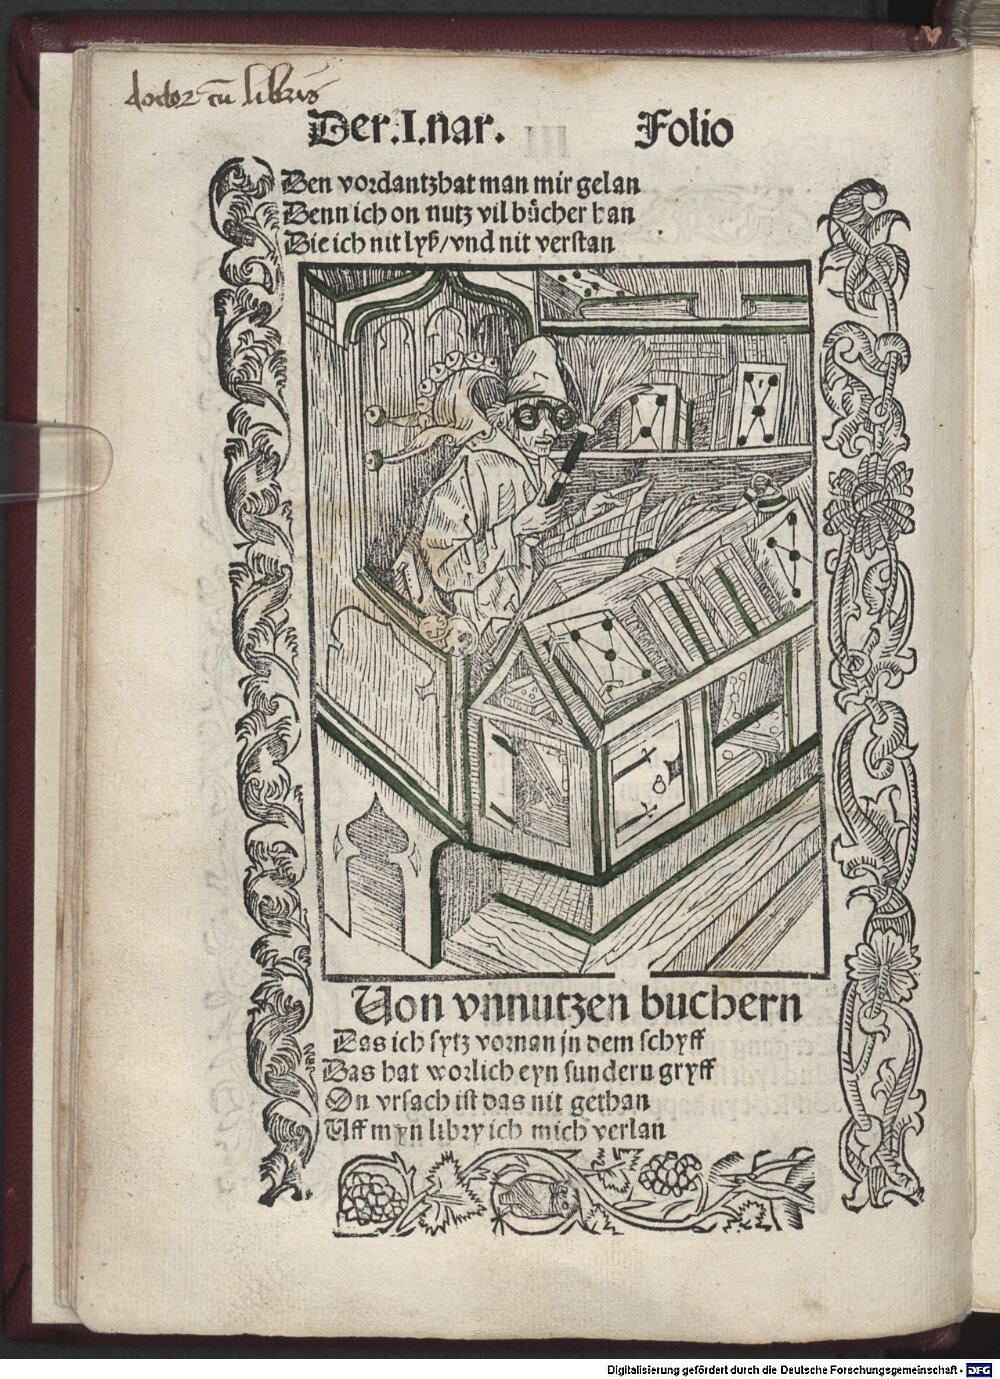 doctor cū libris
Der.I.nar. Folio
Den vordantz hat man mir gelan
Denn ich on nutz vil buͤcher han
Die ich nit lyß/vnd nit verstan
Von vnnutzen buchern
Das ich sytz vornan jn dem schyff
Das hat worlich eyn sundern gryff
On vrsach ist das nit gethan
Uff myn libry ich mich verlan
Digitalisierung gefördert durch die Deutsche Forschungsgemeinschaft - DFG